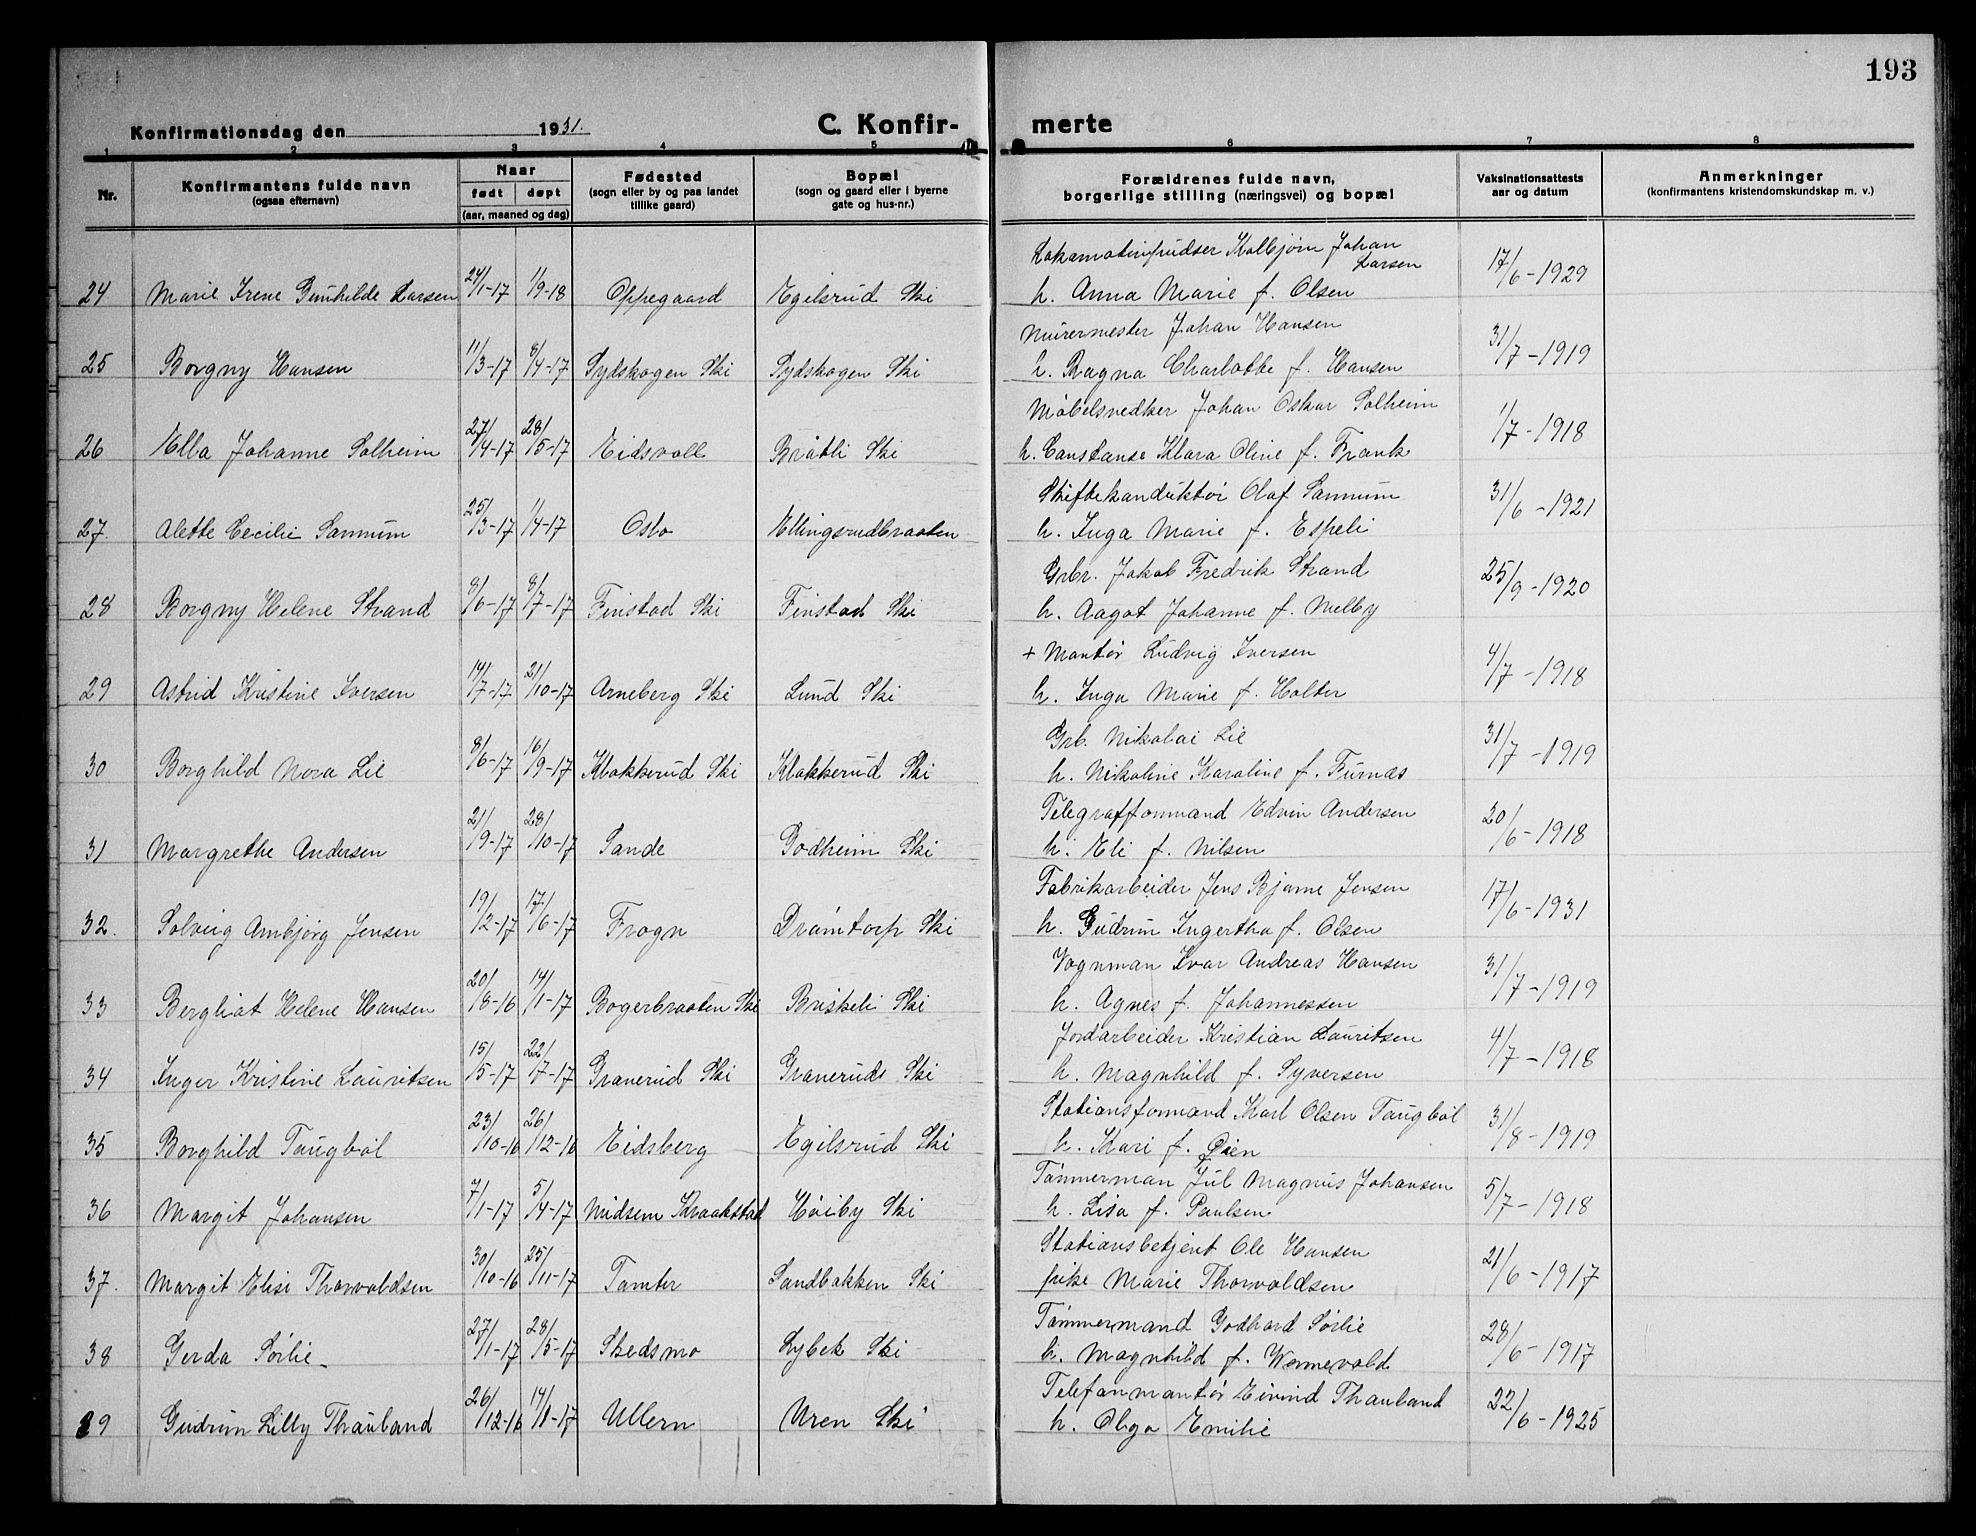 193
Konfirmationsdag den 1931. C. Konfir- merte
1 2 3 4 5 6 7 8
Nr. Konfirmantens fulde navn (ogsaa efternavn) Naar født døpt (aar, maaned og dag) Fødested (sogn eller by og paa landet tillike gaard) Bopæl (sogn og gaard eller i byerne gate og hus-nr.) Forældrenes fulde navn, borgerlige stilling (næringsvei) og bopæl Vaksinationsattests aar og datum Anmerkninger (konfirmantens kristendomskundskap m. v.)
Kolbjørn Johan Larsen
24 Marie Irene Gunhilde Larsen 24/1-17 1/9-18 Oppegaard Egilsrud Ski h. Anna Marie f. Olsen 17/6-1929
Murermester Johan Hansen
25 Borgny Hansen 11/3-17 8/4-17 Sydskogen Ski Sydskogen Ski h. Ragna Charlotte f. Hansen 31/7-1919
Møbelsnedker Johan Oskar Solheim
26 Ella Johanne Solheim 27/4-17 28/5-17 Eidsvoll Bråtli Ski h. Constanse Klara Oline f. Frank 1/7-1918
Skiftekonduktør Olaf Sannum
27. Alette Cecilie Sannum 25/3-17 1/4-17 Oslo Ellingsrudbraaten h. Inga Marie f. Espeli 31/6-1921
Grbr. Jakob Fredrik Strand
28 Borgny Helene Strand 8/6-17 8/7-17 Finstad Ski Finstad Ski h. Aagot Johanne f. Melby 25/9-1920
+ Montør Ludvig Iversen
29 Astrid Kristine Iversen 14/7-17 21/10-17 Arneberg Ski Lund Ski h. Inga Marie f. Holter 4/7-1918
Grb. Nikolai Lie
30 Borghild Nora Lie 8/6-17 16/9-17 Klokkerud Ski Klokkerud Ski h. Nikoline Karoline f. Furnæs 31/7-1919
Telegrafformand Edvin Andersen
31 Margrethe Andersen 21/9-17 28/10-17 Sande Godheim Ski h. Eli f. Nilsen 20/6-1918
Fabrikarbeider Jens Bjarne Jensen
32. Solveig Arnbjørg Jensen 19/2-17 17/6-17 Frogn Drømtorp Ski h. Gudrun Ingertha f. Olsen 17/6-1931
Vognman Ivar Andreas Hansen
33 Bergliot Helene Hansen 20/8-16 14/1-17 Bogerbraaten Ski Briskeli Ski h. Agnes f. Johannessen 31/7-1919
Jordarbeider Kristian Lauritsen
34 Inger Kristine Lauritsen 15/5-17 22/7-17 Granerud Ski Graneruds Ski h. Magnhild f. Syversen 4/7-1918
Stationsformand Karl Olsen Taugbøl
35 Borghild Taugbøl 23/10-16 26/12-16 Eidsberg Egilsrud Ski h. Kari f. Øien 31/8-1919
Tømmerman Jul Magnus Johansen
36 Margit Johansen 7/1-17 5/4-17 Midsem Kraakstad Høiby Ski h. Lisa f. Paulsen 5/7-1918
Stationsbetjent Ole Hansen
37. Margit Elise Thorvaldsen 30/10-16 25/11-17 Tomter Sandbakken Ski pike Marie Thorvaldsen 21/6-1917
Tømmermand Godhard Sørlie
38 Gerda Sørlie 27/1-17 28/5-17 Skedsmo Lybek Ski h. Magnhild f. Wennevold 28/6-1917
Telefonmontør Eivind Thauland
39 Gudrun Lilly Thauland 26/12-16 14/1-17 Ullern Uren Ski h. Olga Emilie 22/6-1925